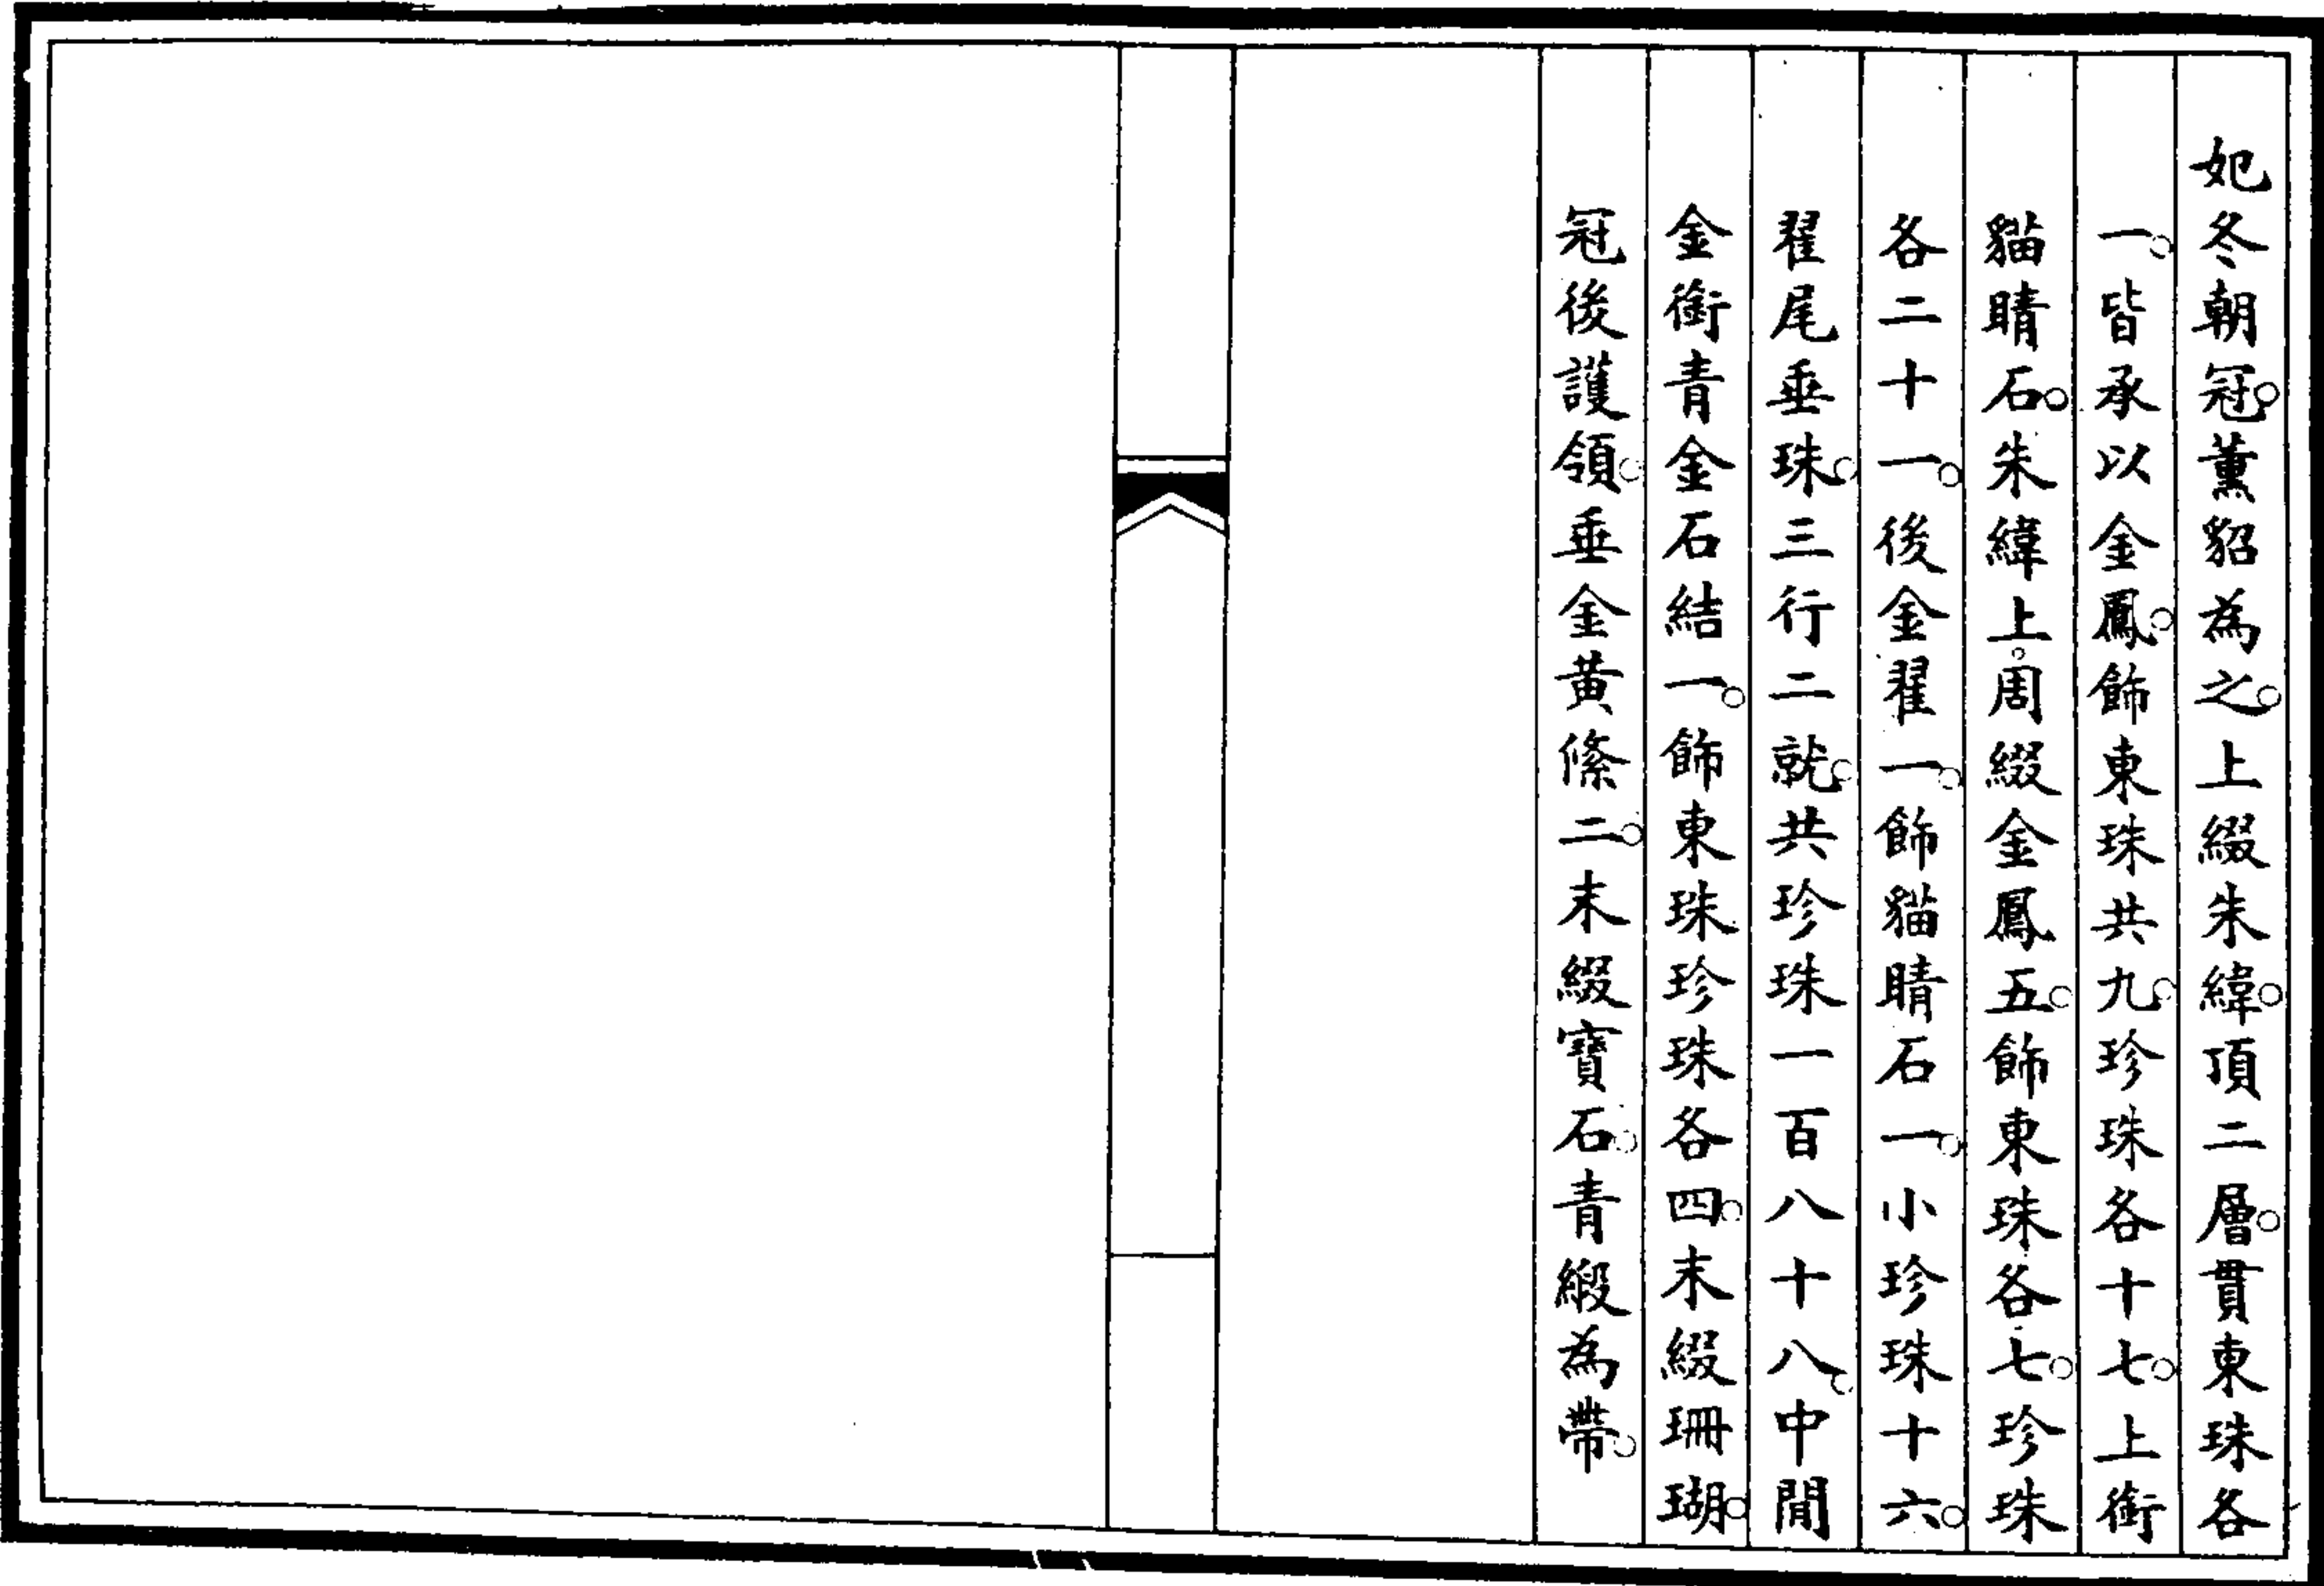 妃冬朝冠。薰貂為之。上綴朱緯。頂二層。貫東珠各
一。皆承以金鳳。飾東珠共九。珍珠各十七。上銜
貓睛石。朱緯上。周綴金鳳五。飾東珠各七。珍珠
各二十一。後金翟一。飾貓睛石一。小珍珠十六。
翟尾垂珠。三行二就。共珍珠一百八十八。中閒
金銜青金石結一。飾東珠珍珠各四。末綴珊瑚。
冠後護領。垂金黃絛二。末綴寶石。青緞為帶。